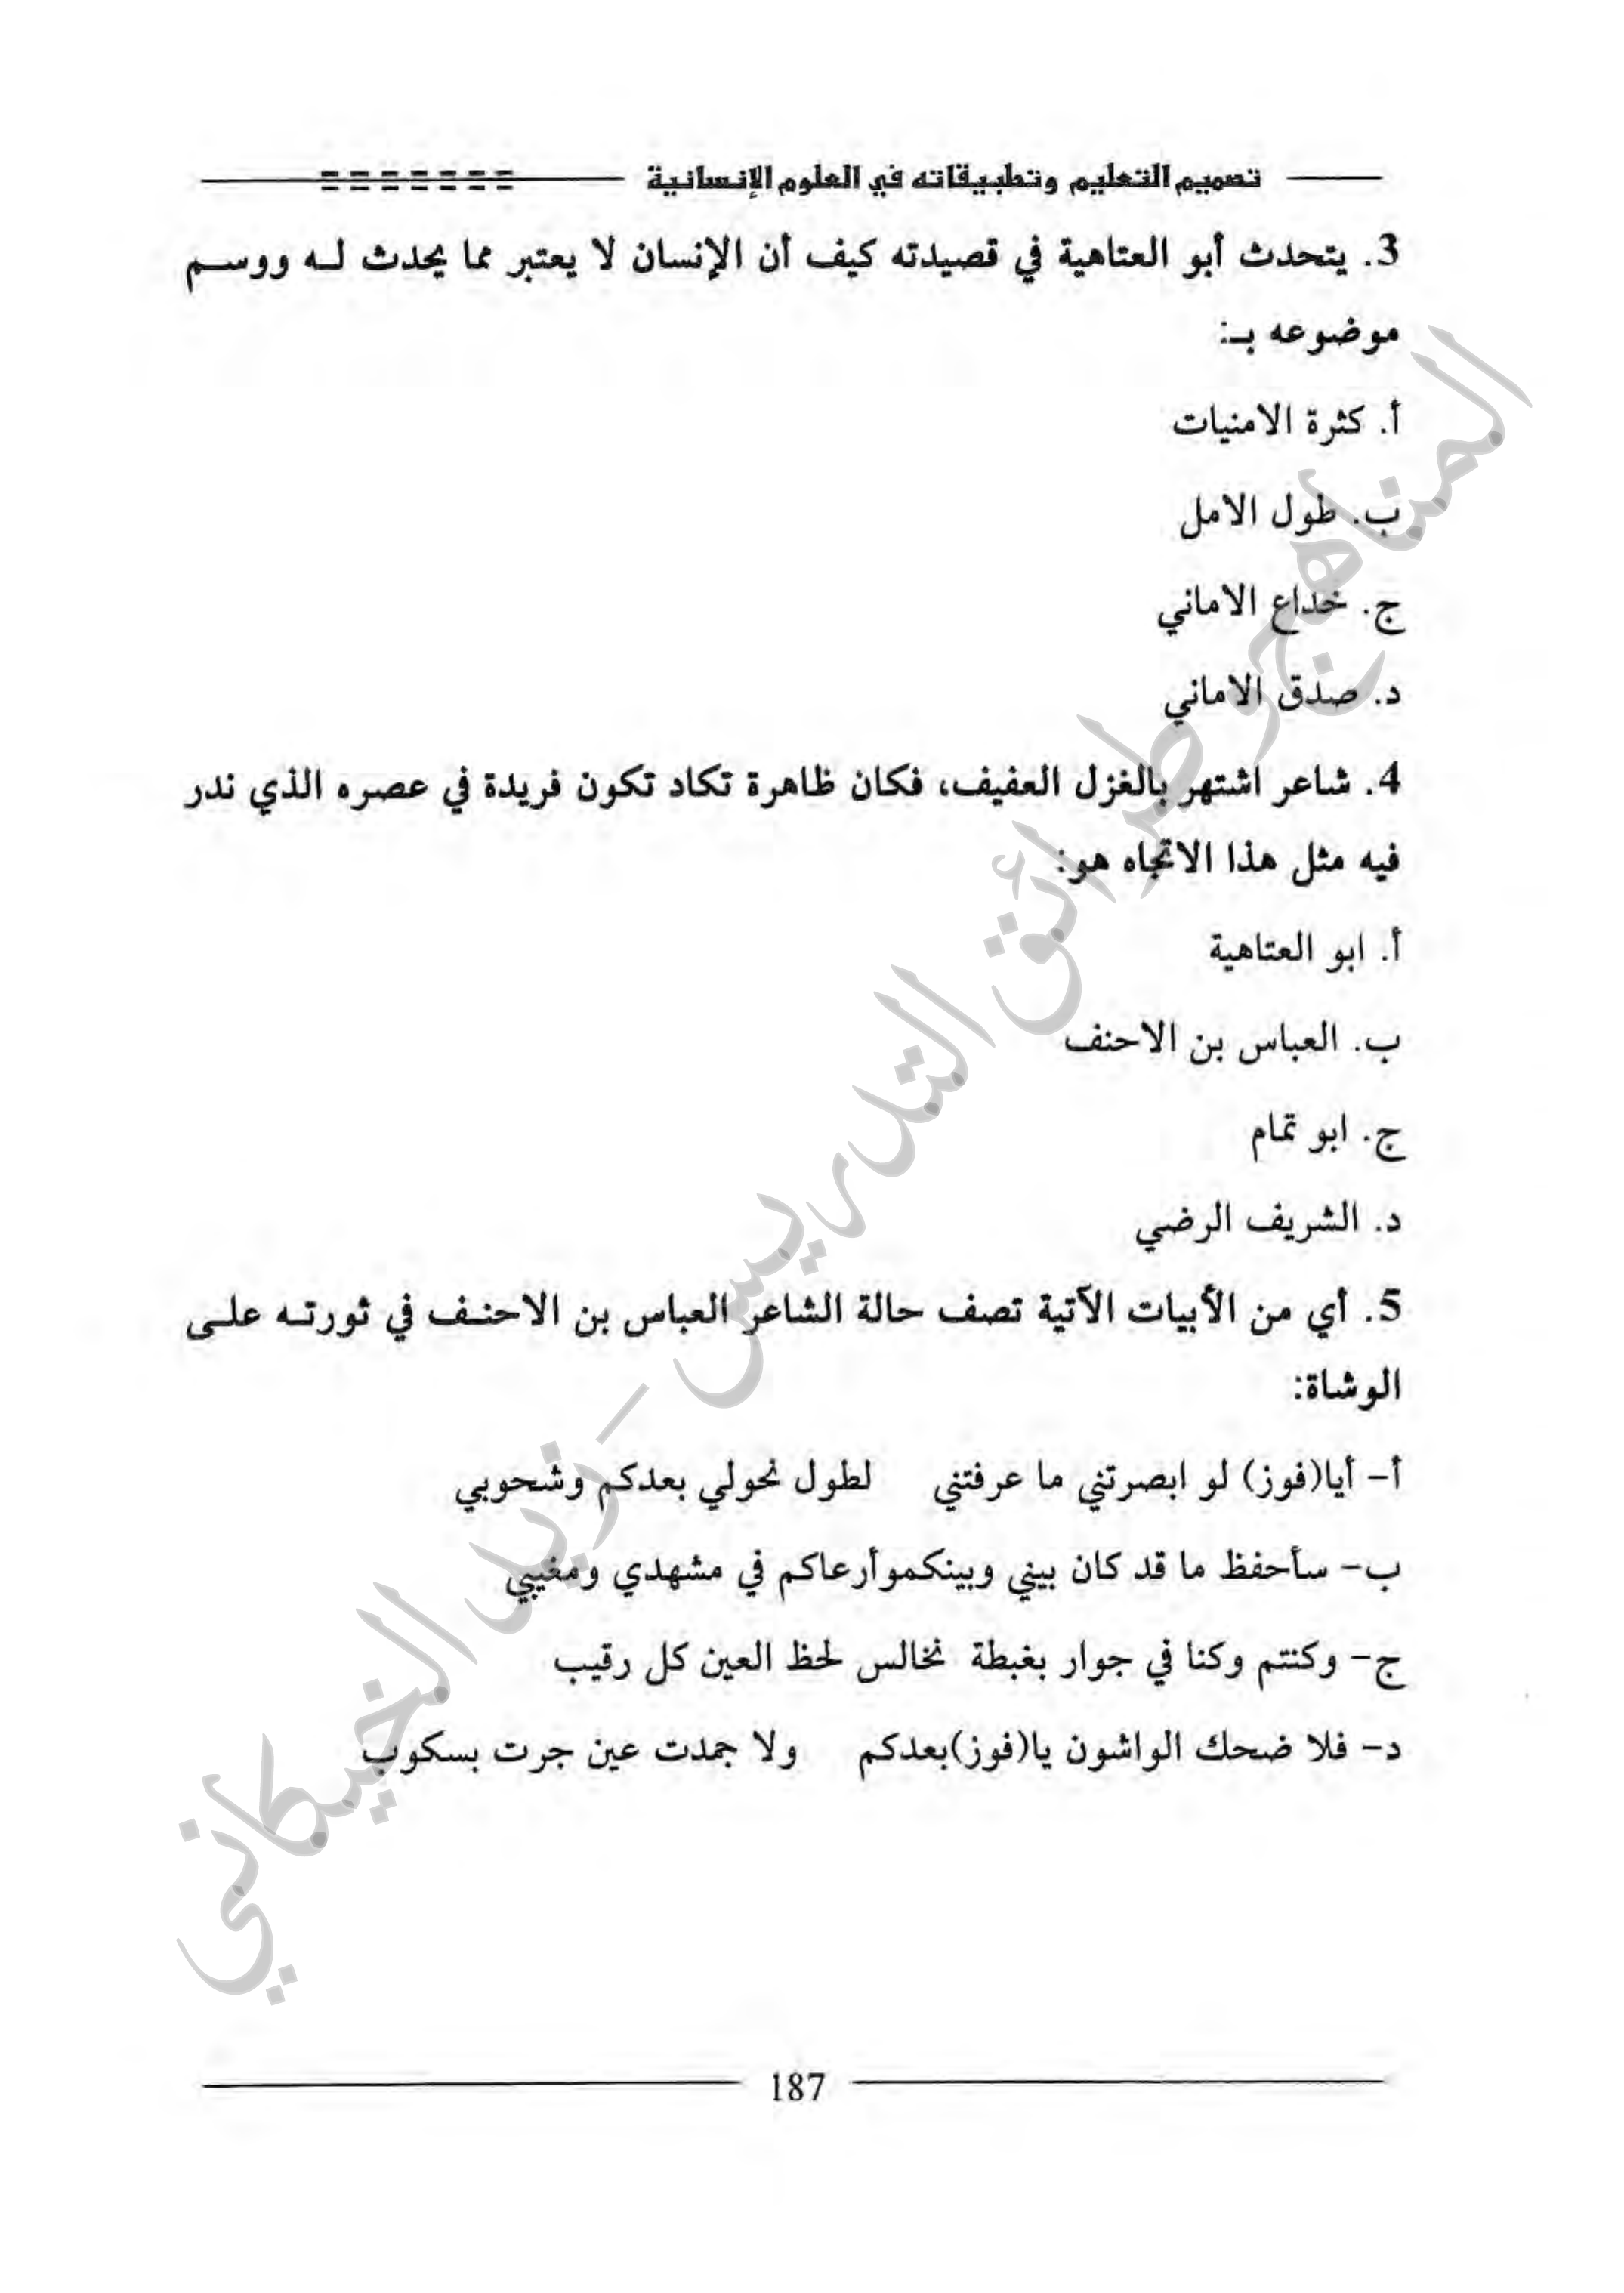 تصميم التعليم وتطبيقاته في العلوم الإنسانية
3. يتحدث أبو العتاهية في قصيدته كيف أن الإنسان لا يعتبر مما يحدث له ووسم
موضوعه بـ:
أ. كثرة الامنيات
ب. طول الامل
ج. خداع الاماني
د. صدق الاماني
4. شاعر اشتهر بالغزل العفيف، فكان ظاهرة تكاد تكون فريدة في عصره الذي ندر
فيه مثل هذا الاتجاه هو:
أ. ابو العتاهية
ب. العباس بن الاحنف
ج. ابو تمام
د. الشريف الرضي
5. أي من الأبيات الآتية تصف حالة الشاعر العباس بن الاحنف في ثورته على
الوشاة:
أ- أيا(فوز) لو ابصرتني ما عرفتني لطول نحولي بعدكم وشحوبي
ب- سأحفظ ما قد كان بيني وبينكموأرعاكم في مشهدي ومغيبي
ج- وكنتم وكنا في جوار بغبطة نخالس لحظ العين كل رقيب
د- فلا ضحك الواشون يا(فوز)بعدكم ولا جمدت عين جرت بسكوب
المناهج وطرائق التدريس - زيد الخيكاني
187